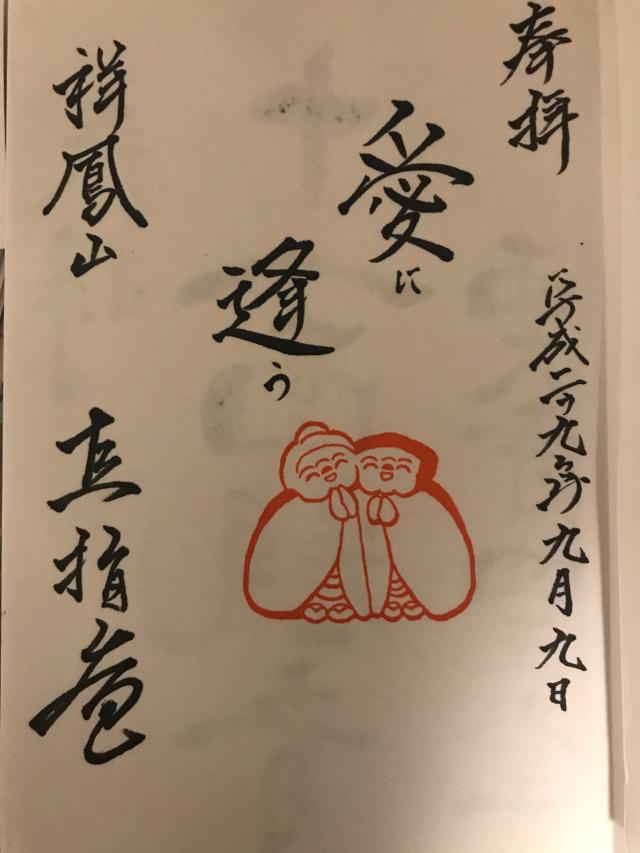 奉拝
平成二十九年九月九日
愛に
逢う
祥鳳山
直指庵